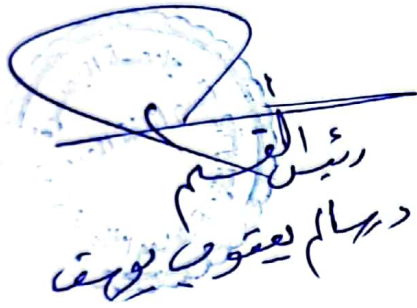 رئيس القسم
د. سالم يعقوب يوسف